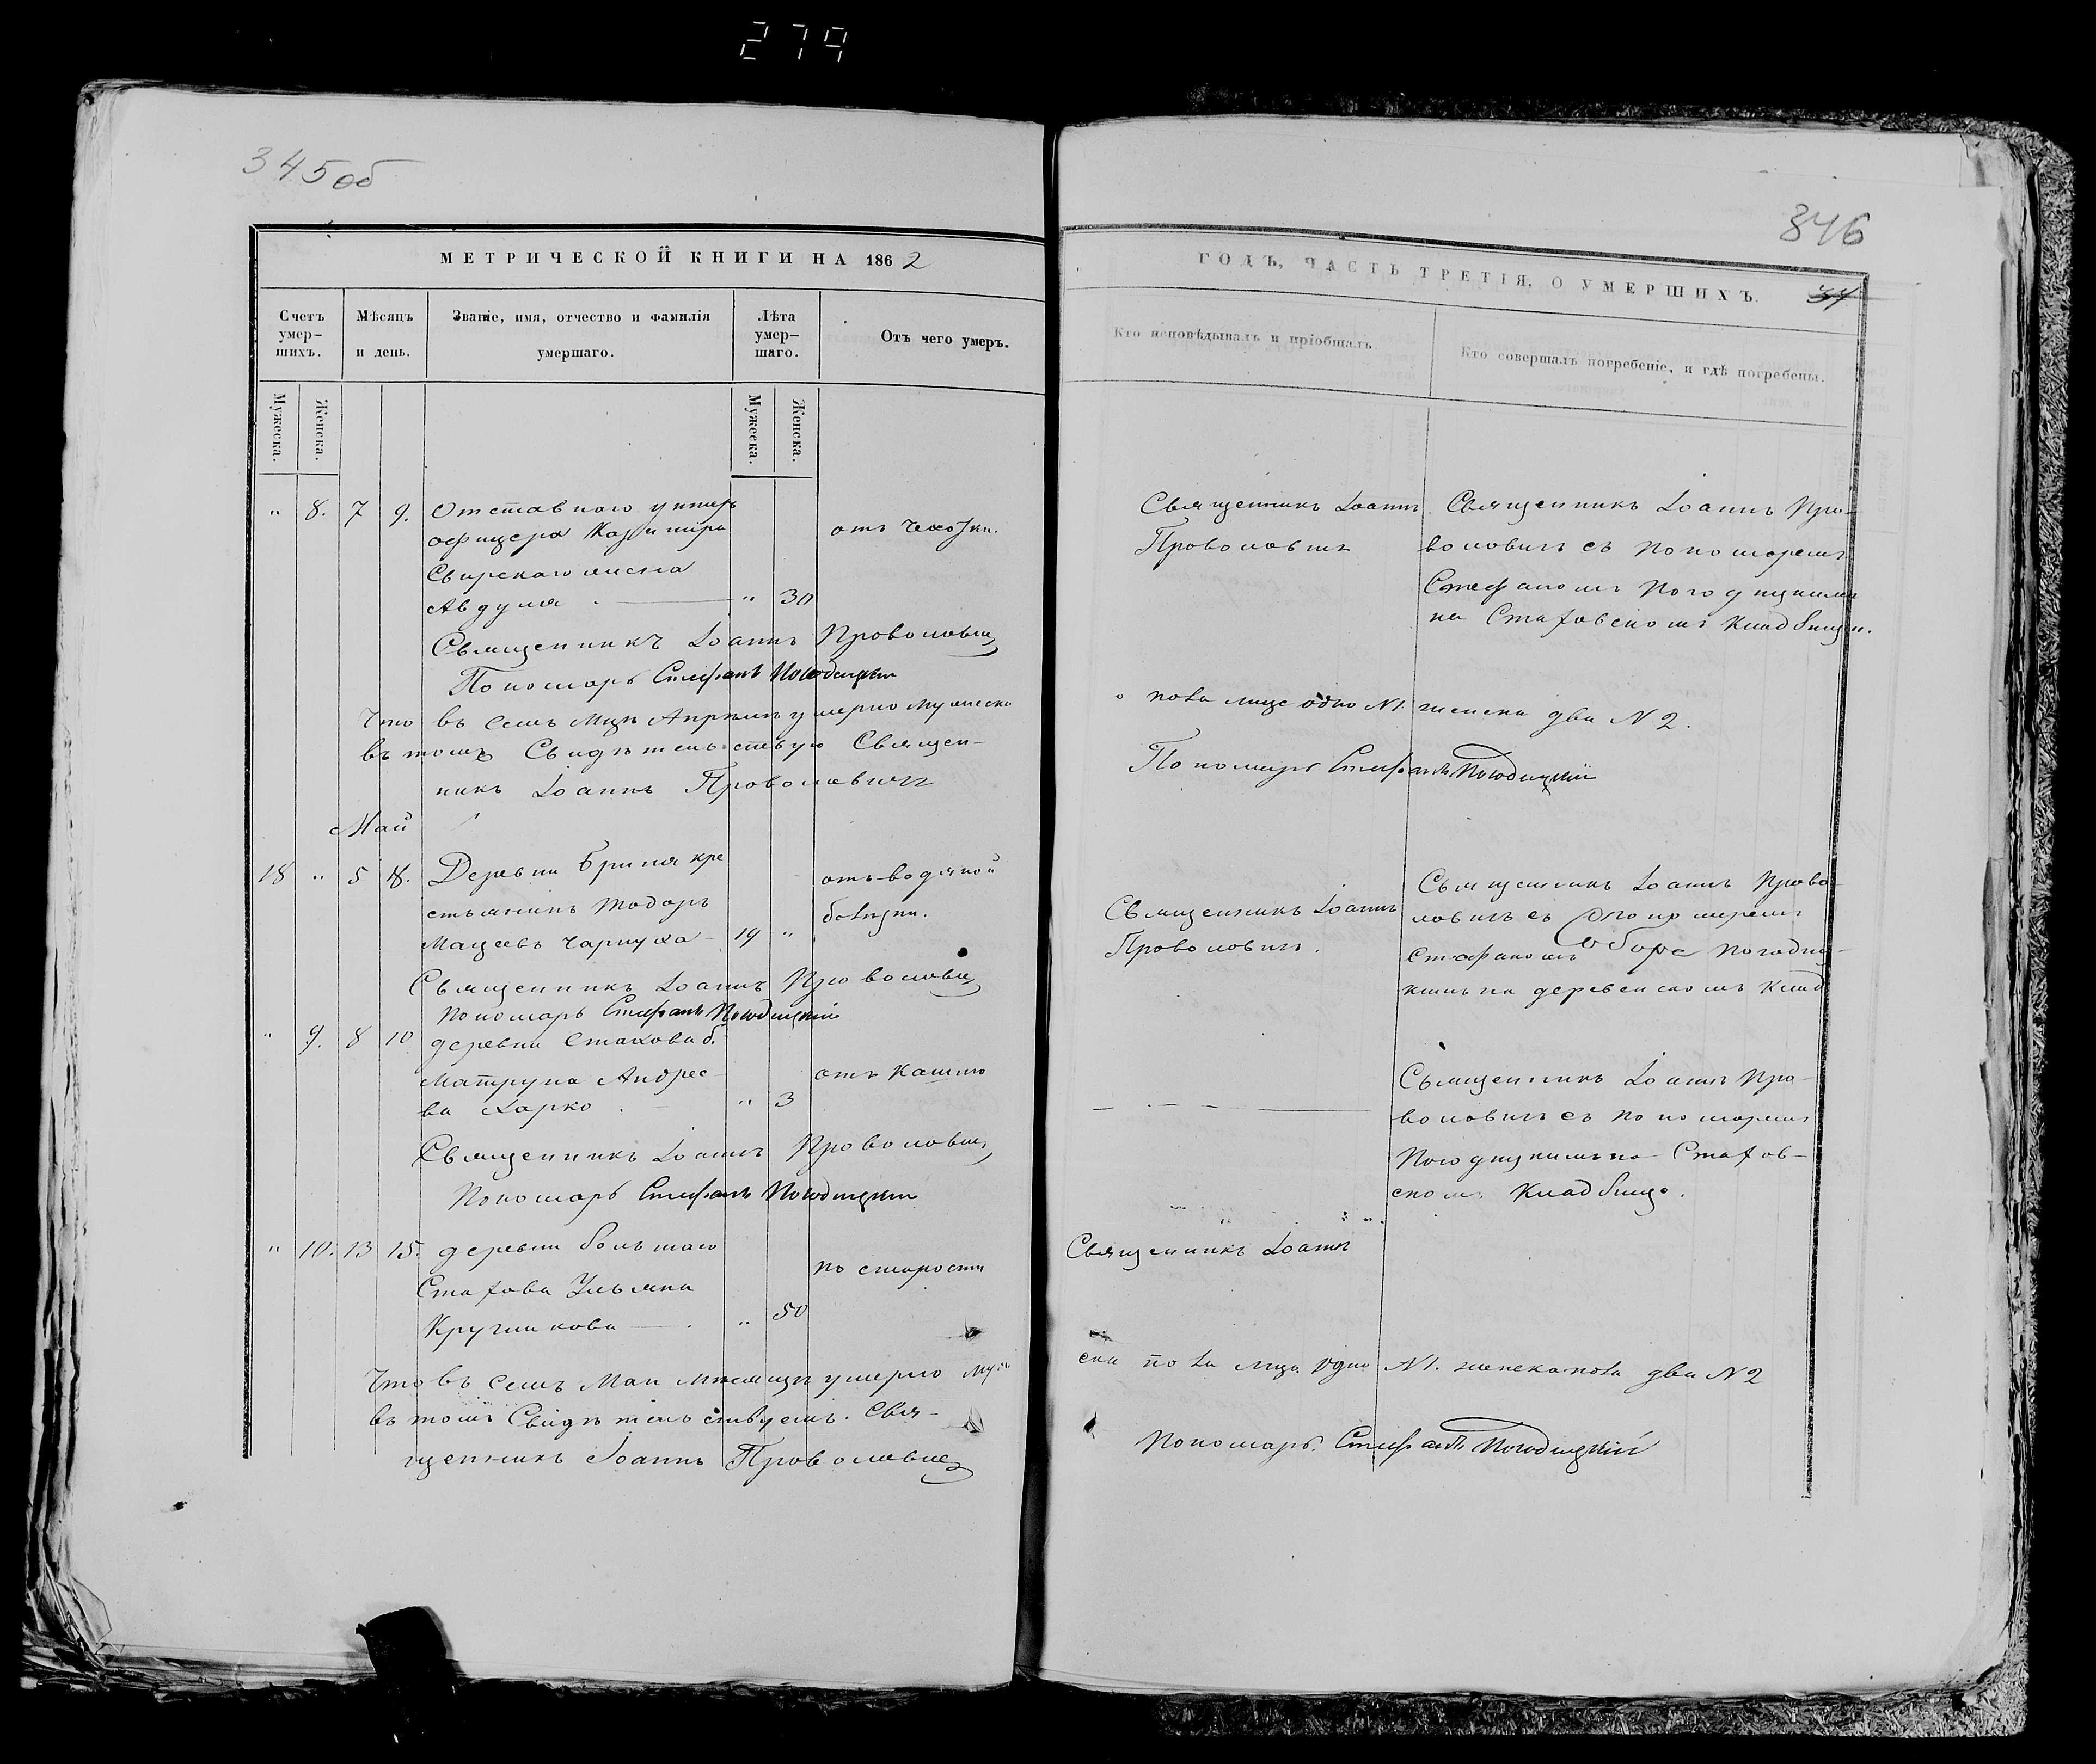 279
345об
МЕТРИЧЕСКОЙ КНИГИ НА 1862
Счетъ умер-шихъ.
Мѣсяцъ и день.
Званіе, имя, отчество и фамилія умершаго.
Лѣта умер-шаго.
Отъ чего умеръ.
Мужеска.
Женска.
Мужеска.
Женска.
" 8. 7 9. Отставного унтеръ
офицера Казимира
отъ чахотки.
Свирскаго жена
Авдуля " 30
Священникъ Іоаннъ Проволовичъ
Пономарь Стефанъ Погодицкій
Что въ семъ Мцѣ Апрѣлѣ умерло мужеска
въ томъ Свидѣтельствую Священ-
никъ Іоаннъ Проволовичъ
Май
18 " 5 8. Деревни Бриля кре
отъ водяной
стьянинъ Тодоръ
болѣзни.
Мацеевъ Чарнуха 19 "
Священникъ Іоаннъ Проволовичъ
Пономарь Стефанъ Погодицкій
" 9. 8 10 деревни Стахова б.
Матруна Андрее-
отъ кашлю
ва Харко " 3
Священникъ Іоаннъ Проволовичъ
Пономарь Стефанъ Погодицкій
" 10. 13 15. деревни большаго
по старости
Стахова Ульяна
Кругликова " 50
Что въ семъ Маи мѣсяцѣ умерло муже
въ томъ Свидѣтельствуемъ. Свя-
щенникъ Іоаннъ Проволовичъ
346
ГОДЪ, ЧАСТЬ ТРЕТІЯ, О УМЕРШИХЪ.
Кто исповѣдывалъ и пріобщалъ.
Кто совершалъ погребеніе, и гдѣ погребены.
Священникъ Іоаннъ
Проволовичъ
Священникъ Іоаннъ Про-
воловичъ съ пономаремъ
Стефаномъ Погодицкимъ
на Стаховскомъ кладбищи.
пола лице одно N1. женска два N2.
Пономарь Стефанъ Погодицкій
Священникъ Іоаннъ
Проволовичъ.
Священникъ Іоаннъ Прово-
ловичъ съ пономаремъ
Стефаномъ Погодиц-
кимъ на деревенскомъ клад
Священникъ Іоаннъ Про-
воловичъ съ пономаремъ
Погодицкимъ на Стахов-
скомъ кладбище.
Священникъ Іоаннъ
ска пола лица одно N1. женска пола два N2
Пономарь. Стефанъ Погодицкій